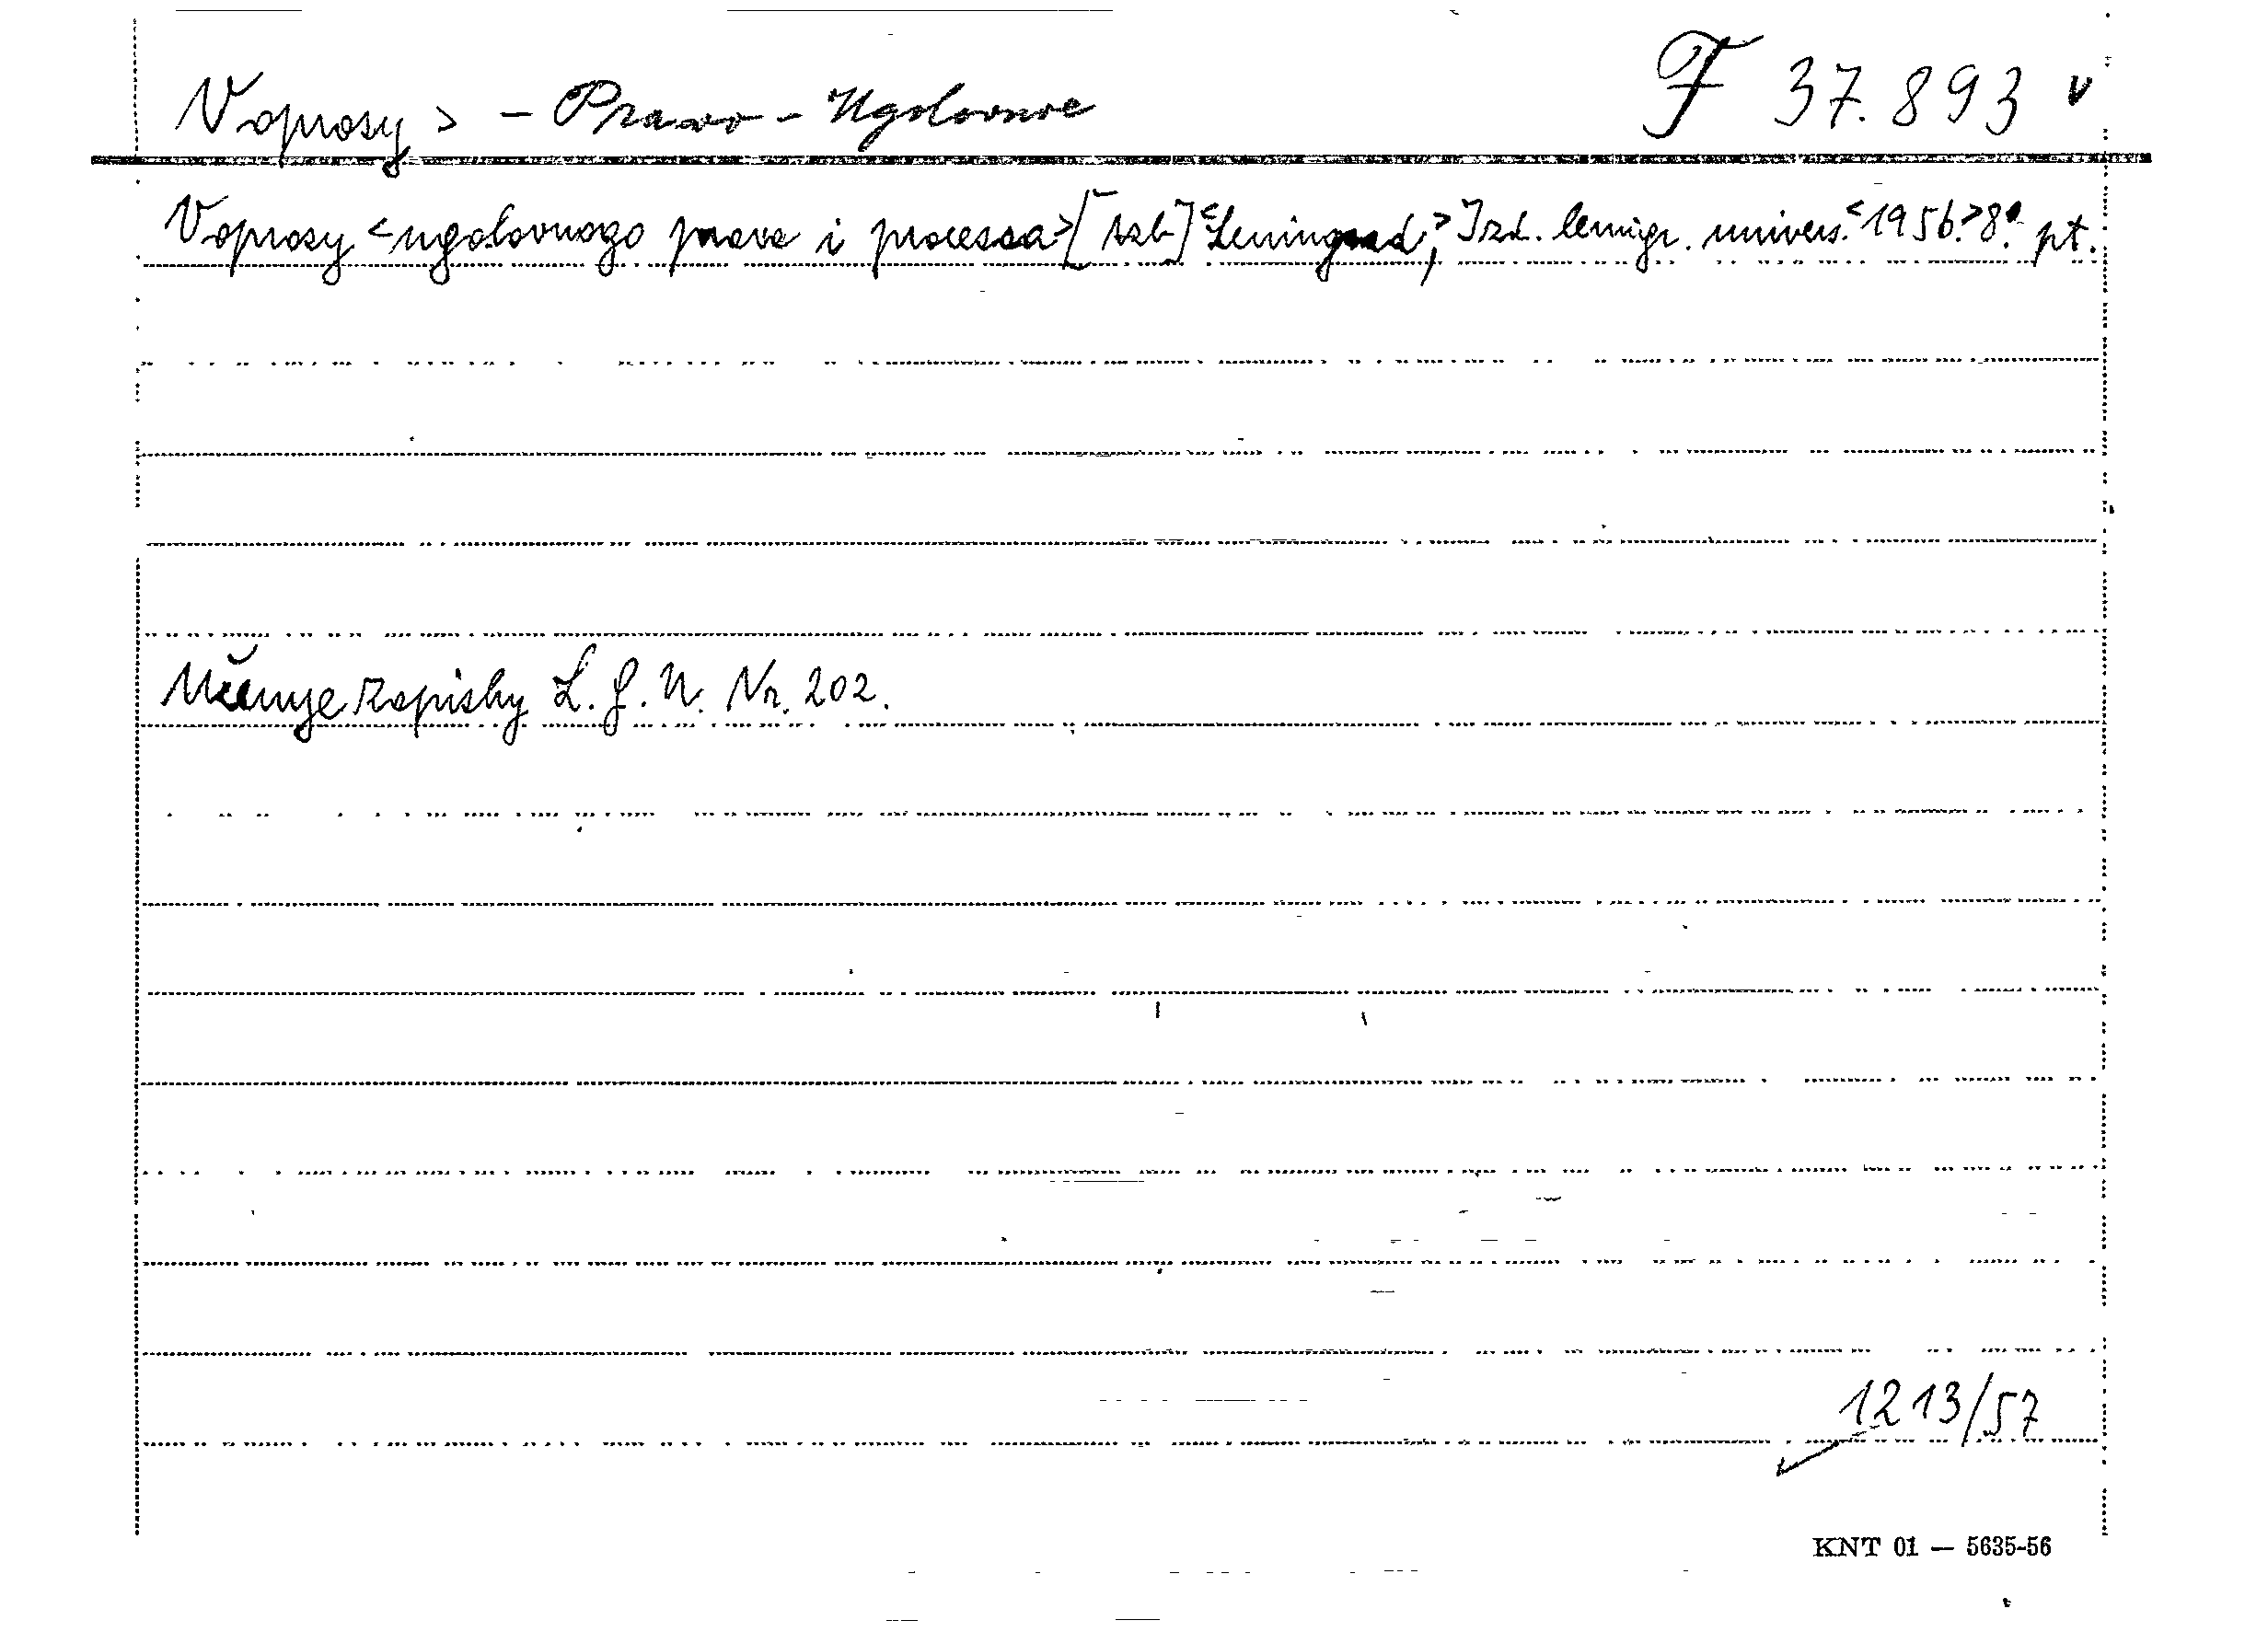 Voprosy > - Pravo - Ugolovnoe F 37.893 v
Voprosy <ugolovnogo prava i processa> [Tsb] <Leningrad,> Izd. leningr. univers. <1956.> 8° pt.
Učenye zapisky L. G. U. Nr. 202.
1213/57
KNT 01 — 5635-56